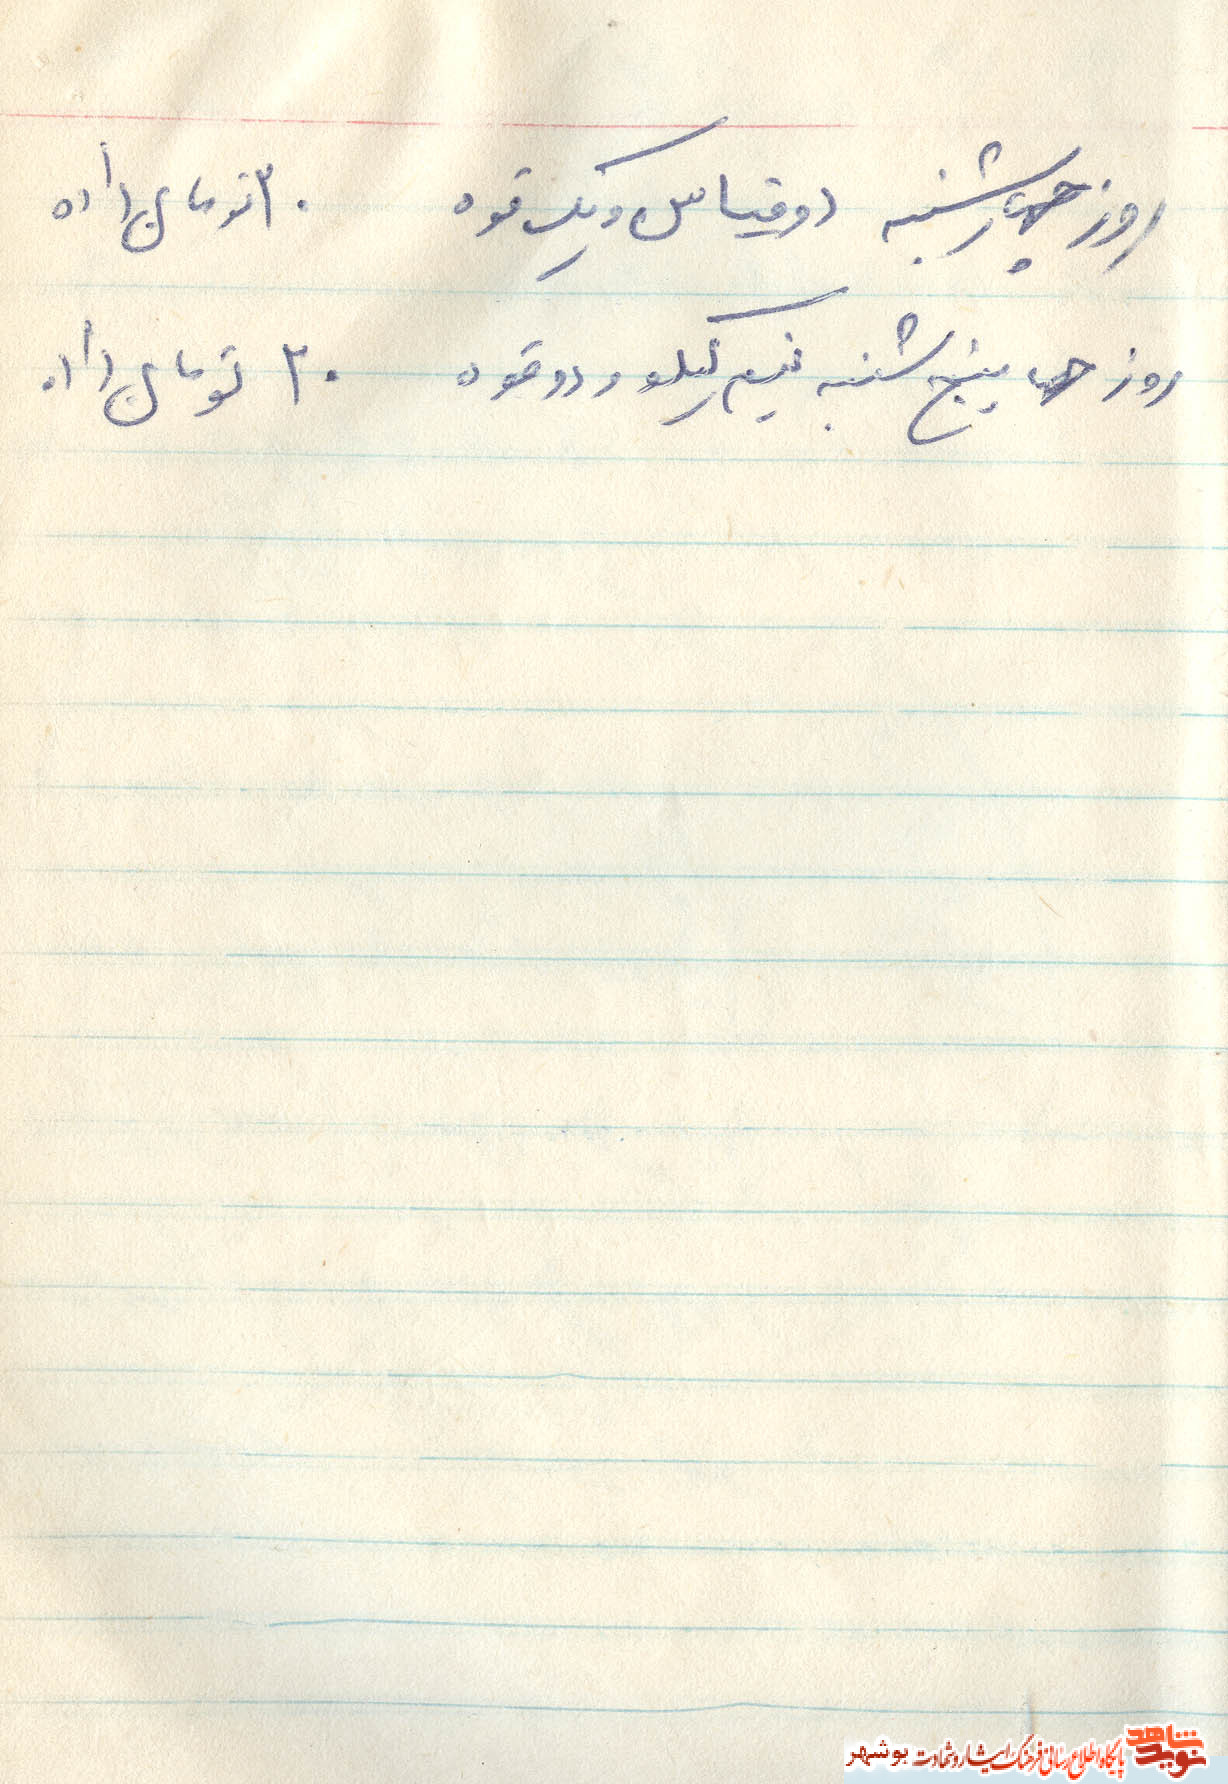 روز چهارشنبه دو قیاس و یک قوه ۳۰ تومان داده
روز پنج شنبه نیم کیلو و دو قوه ۲۰ تومان داده
نوید شاهد پایگاه اطلاع رسانی فرهنگ ایثار و شهادت بوشهر